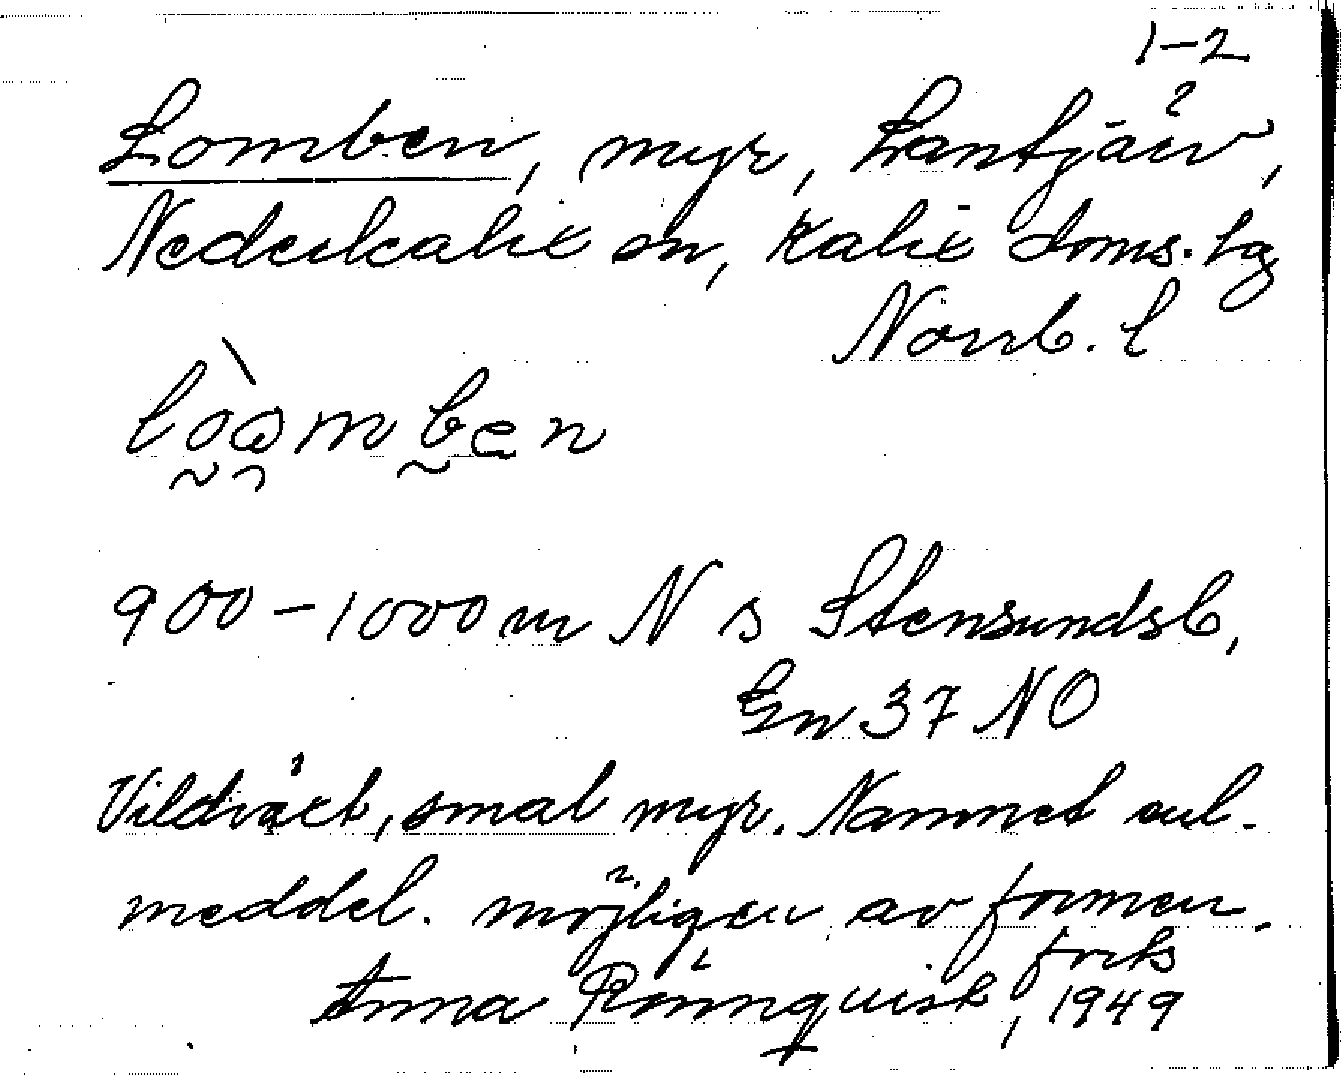 1-2
Lomben, myr, Lantjärv,
Nederkalix sn, Kalix doms. hg
Norrb. l
lòamben
900-1000 m N s Stensundsb,
Gn 37 NO
Vildväxt, smal myr. Namnet enl.
meddel. möjligen av formen.
forts
Anna Rönnquist, 1949